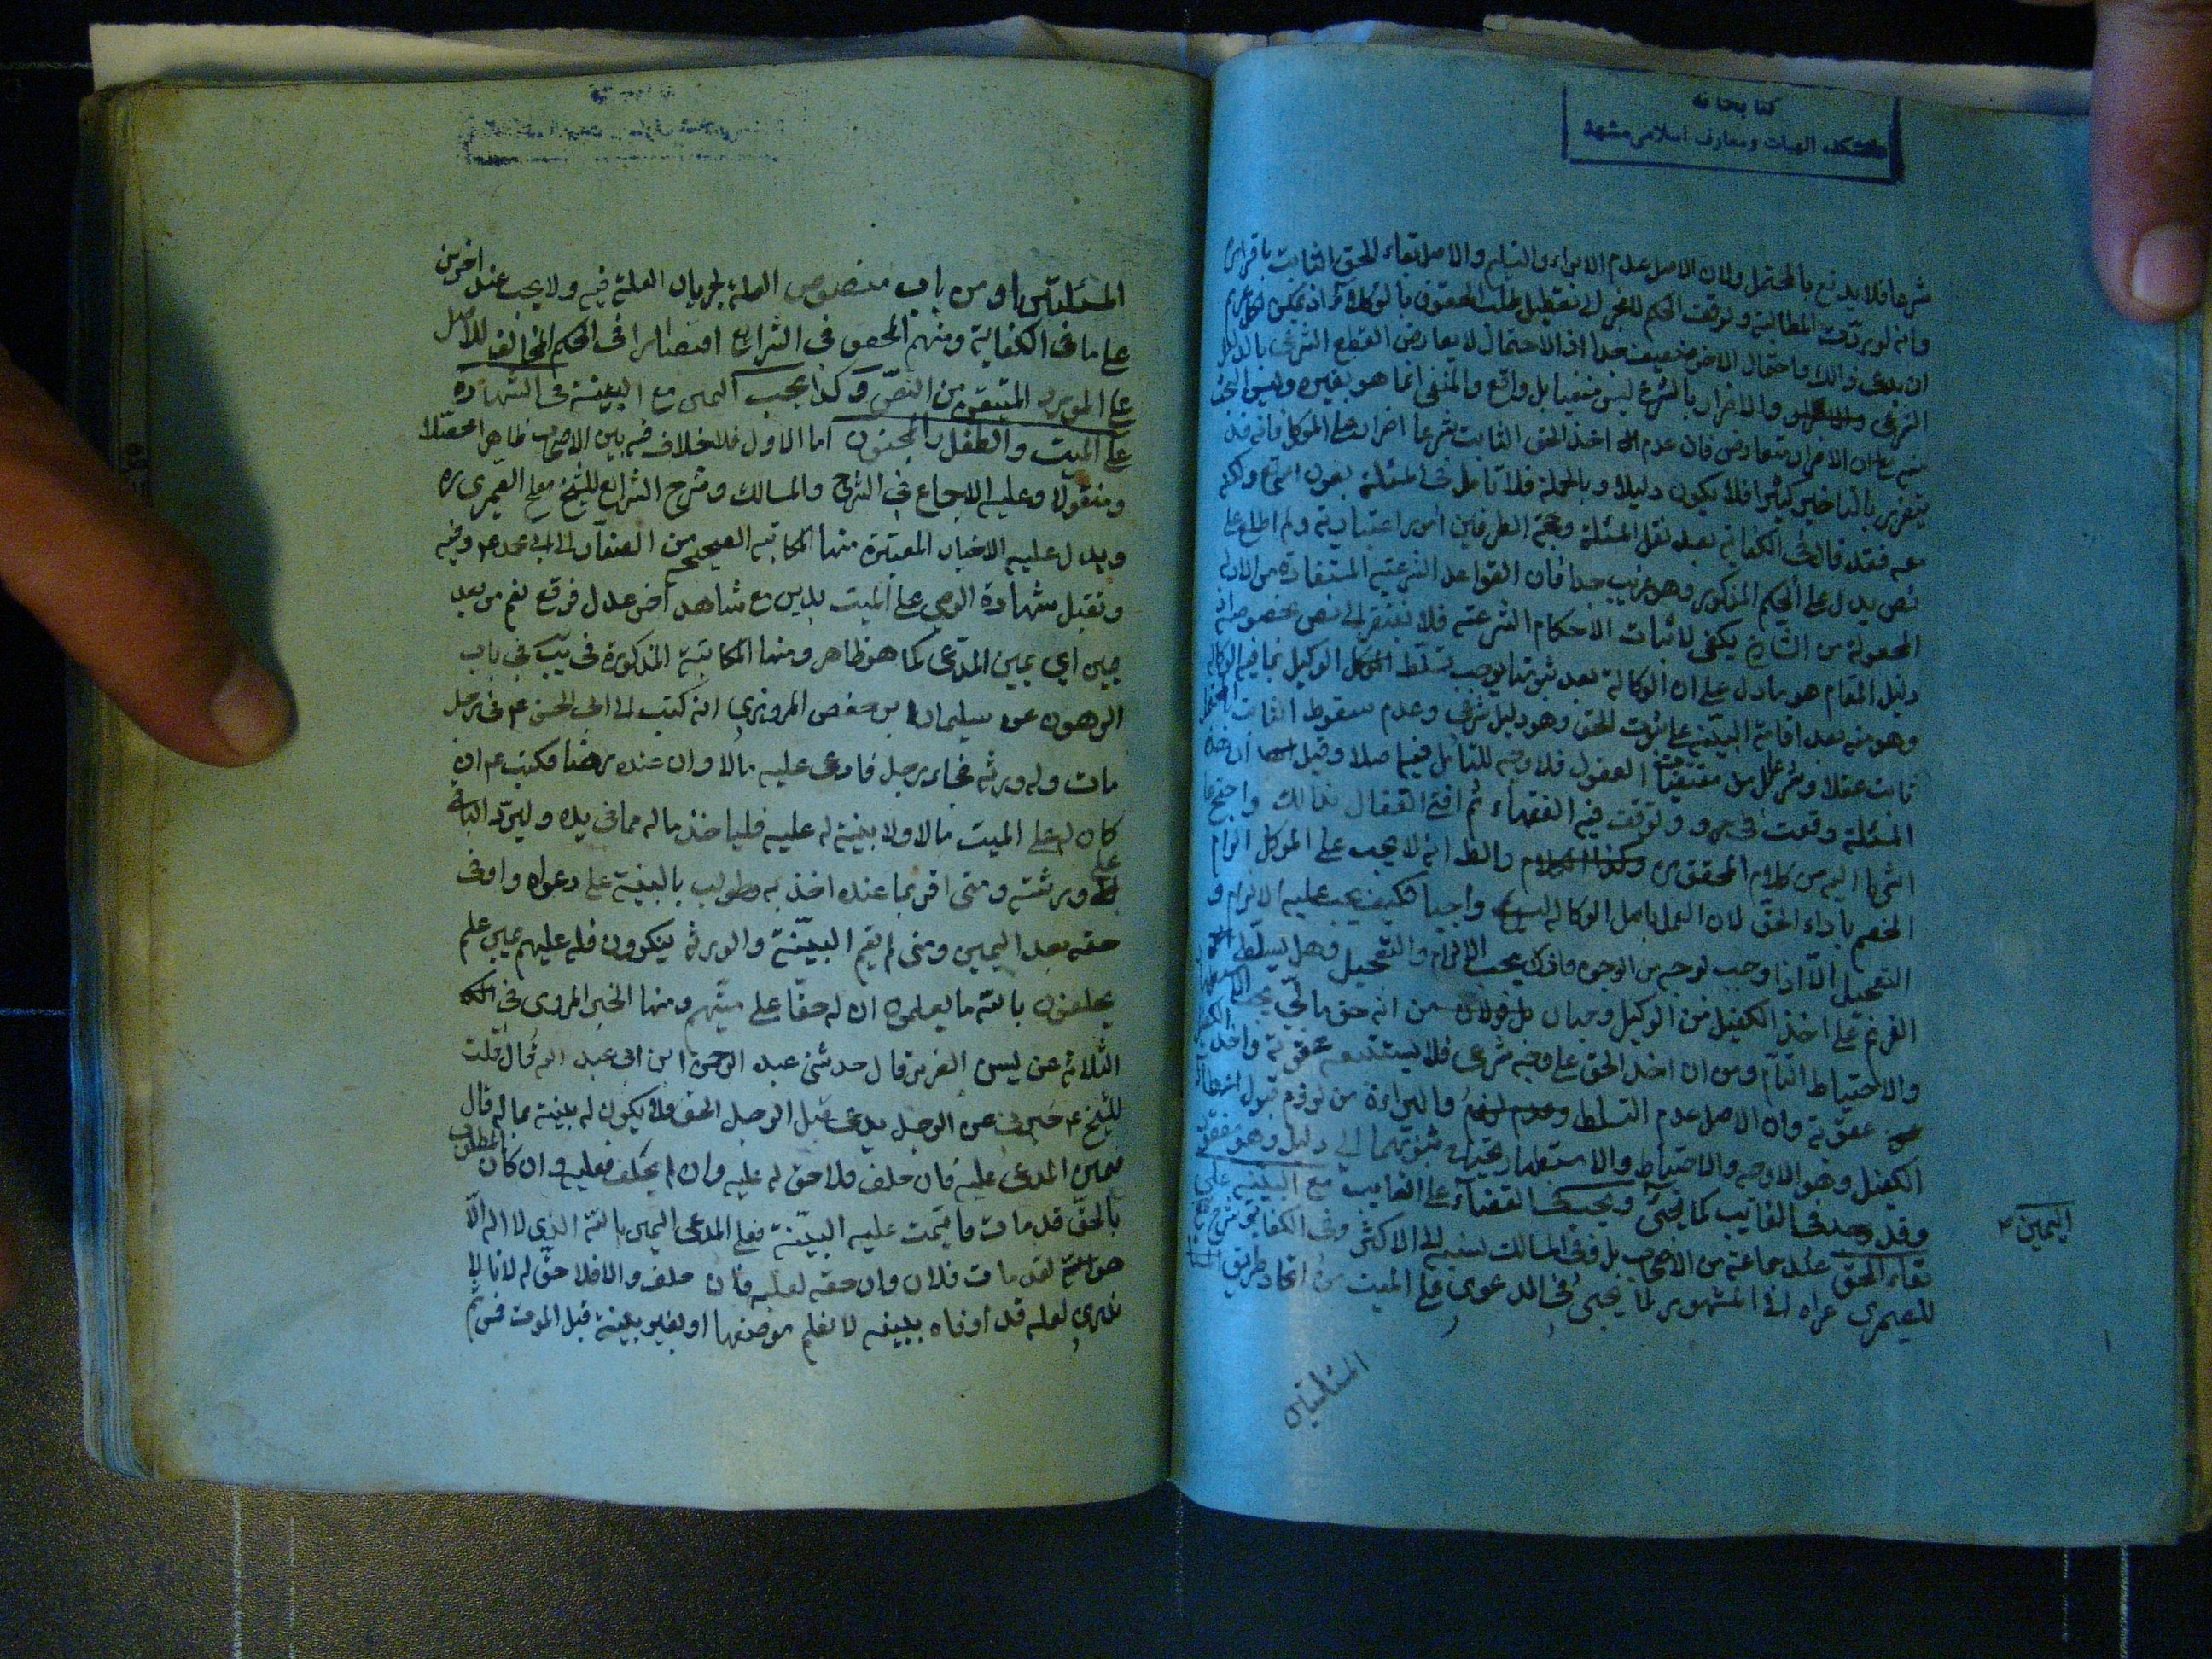 كتابخانه
دانشكده الهيات ومعارف اسلامى مشهد
شرعا فلا يدفع بالمحتمل ولان الاصل عدم الابراء والتسليم والاصل بقاء الحق الثابت باقراره
وانه لو توقف الحكم لانجر الى تعطيل طلب الحقوق بالوكلاء اذ يمكن لكل غريم
ان يدعى ذالك واحتمال الاضرار ضعيف جدا اذ الاحتمال لا يعارض القطع الشرعى بالدليل
الشرعى والاضرار بالشرع ليس منفيا بل واقع والمنفى انما هو بغيره
مع ان الاضرار متعارض فان عدم اخذ الحق الثابت شرعا اضرار على الموكل فانه قد
يتضرر بالتاخير كثيرا فلا يكون دليلا وبالجملة فلا تامل فى المسئلة بعون الله
معه فقد قال فى الكفاية بعد نقل المسئلة وحجة الطرفين امور اعتبارية ولم اطلع على
نص يدل على الحكم المذكور وهو غريب جدا فان القواعد الشرعية المستفادة من الادلة
من الشارع يكفى لاثبات الاحكام الشرعية فلا تفتقر الى نص بخصوصه اذ
دليل المقام هو ما دل على ان الوكالة بعد ثبوتها يوجب تسلط الوكيل بما فيه الوكالة
وهو منه بعد اقامة البينة على ثبوت الحق وهو دليل شرعى وعدم سقوط الثابت
ثابت عقلا وشرعا بل من مقتضيات العقول فلا وجه للتامل فيها اصلا وقيل ان هذه
المسئلة وقعت فى مرو وتوقف فيه الفقهاء ثم افتى القفال بذالك
اليه من كلام المحقق ره والظ انه لا يجب على الموكل الزام
الخصم باداء الحق لان العمل باصل الوكالة ليس واجبا فكيف يجب عليه الالزام و
التعجيل الا اذا وجب لوجه من الوجوه يجب الالزام والتعجيل وهل يتسلط
الغريم على اخذ الكفيل من الوكيل وجهان من انه حق مالى
والاحتياط التام ومن ان اخذ الحق على وجه شرعى فلا يستتبعه عقوبة واخذ الكفيل
عقوبة وان الاصل عدم التسلط والبراءة من لزوم قبول
الكفيل وهو الاوجه والاحتياط والاستظهار يحتاج ثبوتهما الى دليل وهو مفقود
وقد فى الغايب كما يجئ ويجب فى القضاء على الغايب مع البينة على
اليمين
بقاء الحق عند جماعة من الاصحاب بل فى المسالك نسبه الى الاكثر وفى الكفاية
للصيمرى عزاه الى المشهور لما يجئ فى الدعوى على الميت من اتحاد طريق
المسئلتين
المسئلتين او من باب منصوص العلة لجريان العلة فيه ولا يجب عند اخرين
على ما فى الكفاية ومنهم المحقق فى الشرائع اقتصارا فى الحكم المخالف للاصل
على المورد المتيقن من النص وكذا يجب اليمين مع البينة فى الشهادة
على الميت والطفل والمجنون اما الاول فلا خلاف فيه بين الاصحاب ظاهرا محصلا
ومنقولا وعليه الاجماع فى الشرح والمسالك وشرح الشرائع للشيخ مفلح الصيمرى ره
ويدل عليه الاخبار المعتبرة منها المكاتبة الصحيحة من الصفار الى ابى محمد ع وفيه
وتقبل شهادة الوصى على الميت بدين مع شاهد اخر عدل فوقع نعم من بعد
يمين اى يمين المدعى كما هو ظاهر ومنها المكاتبة المذكورة فى يب فى باب
الرهون عن سليمان بن حفص المروزى انه كتب الى ابى الحسن ع فى رجل
مات وله ورثة فجاء رجل فادعى عليه مالا وان عنده رهنا فكتب ع ان
كان له على الميت مالا ولا بينة له عليه فلياخذ ماله مما فى يده وليرد الباقى
على ورثته ومتى اقر بما عنده اخذ به وطولب بالبينة على دعواه واوفى
حقه بعد اليمين ومتى لم يقم البينة والورثة ينكرون فله عليهم يمين علم
يحلفون بالله ما يعلمون ان له حقا على ميتهم ومنها الخبر المروى فى
الثلاثة عن يس الضرير قال حدثنى عبد الرحمن ابن ابى عبد الله قال قلت
للشيخ ع خبرنى عن الرجل يدعى قبل الرجل الحق فلا يكون له بينة بماله قال
فيمين المدعى عليه فان حلف فلا حق له عليه وان لم يحلف فعليه وان كان المطلوب
بالحق قد مات فاقيمت عليه البينة فعلى المدعى اليمين بالله الذى لا اله الا
هو لقد مات فلان وان حقه لعليه فان حلف والا فلا حق له لانا لا
ندرى لعله قد اوفاه ببينة لا نعلم موضعها او بغير بينة قبل الموت فمن ثم